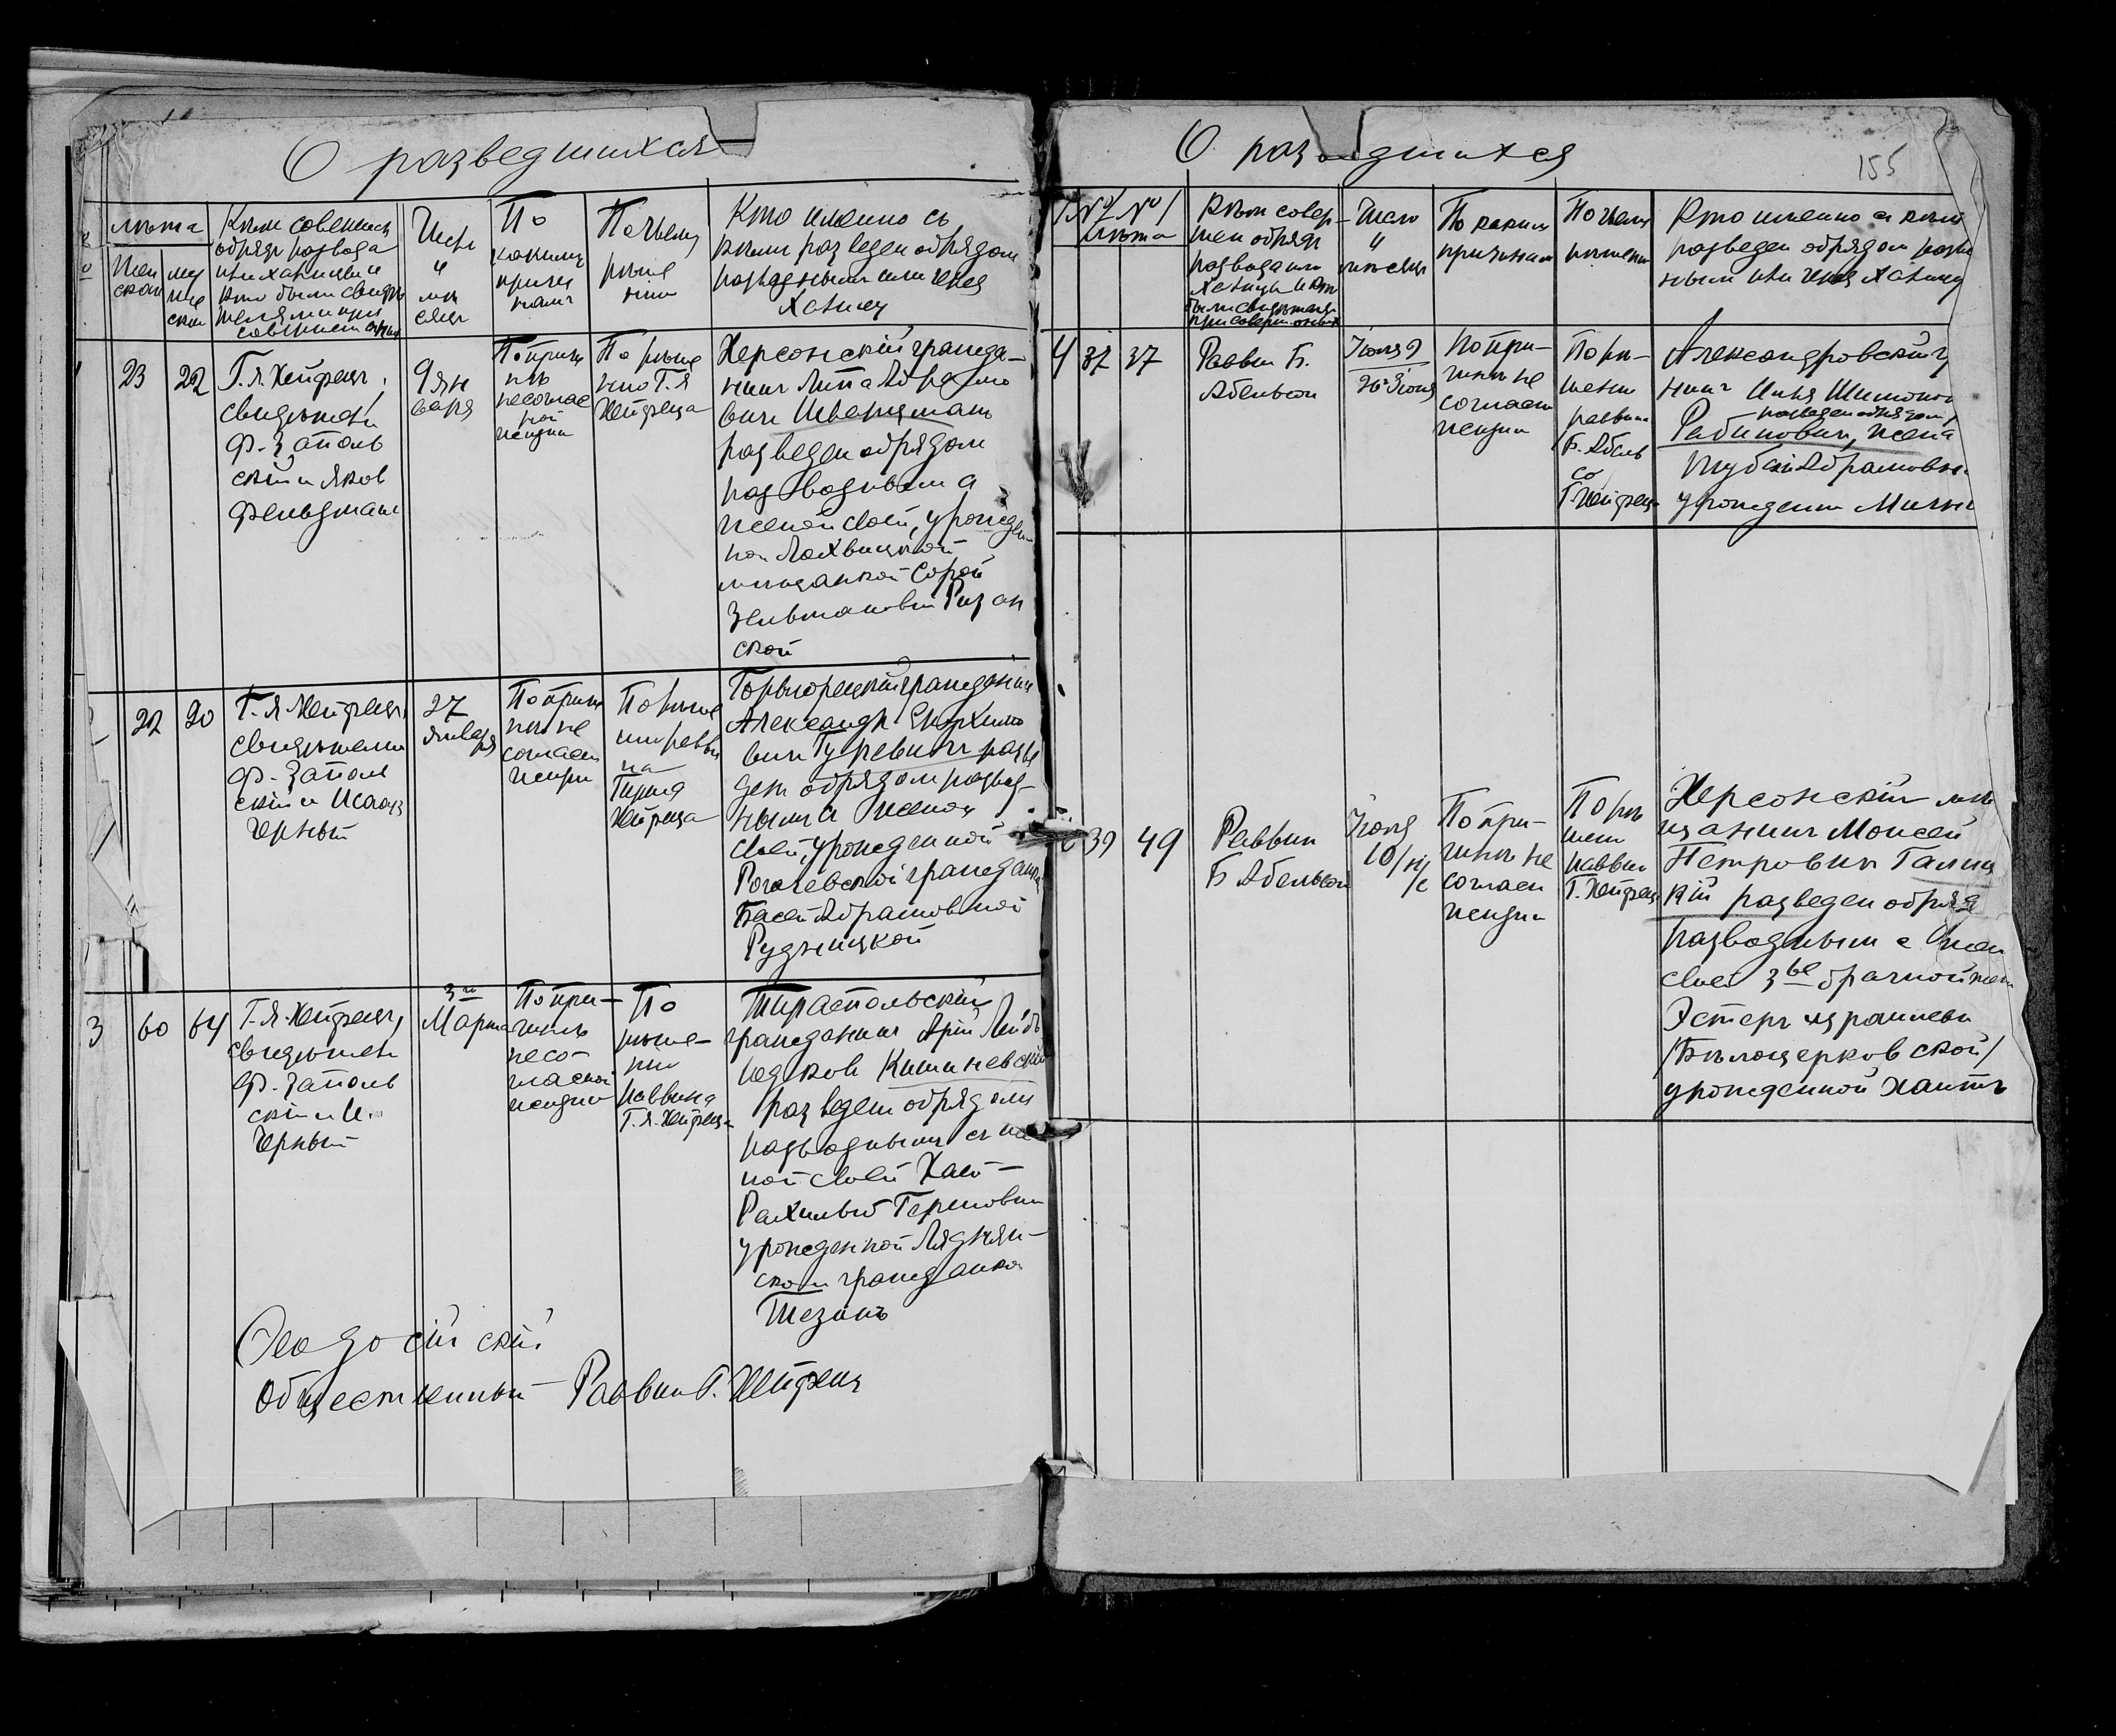 О разведшихся
лѣта
Жен
ской
му
же
ской
Кѣм совершен
обряд развода
или халицы и
кто были свидѣ
телями при
Число
и
мѣ
сяц
По
каким
причи
нам
По чьему
рѣше
нію
Кто именно съ
кѣмъ разведен обрядом
разводным или чрез
халицу
23 22
Г. Я. Хейфец,
свидѣтели
Ф. Заполь
скій и Яков
Фельдман
9 Ян
варя
По причи
нѣ
несоглас
ной
жизни
По рѣше
нію Г. Я.
Хейфеца
Херсонскій гражда-
нин Липа Абрамо
вич Шверцман
разведен обрядом
разводным с
женой своей, урожден-
ной Лохвицкой
мѣщанкой Сорой
Зельмановой Ризан
ской
22 20
Г. Я. Хейфец,
свидѣтели
Ф. Заполь
скій и Исаак
Черный
27
Января
По причи
нѣ не
соглас
жизни
По рѣше
нію равви
на
Хейфеца
гражданин
Александр
вич Гуревич разве
ден обрядом развод-
ным с женой
своей, урожденной
Рогачевской гражданкой
Басей Абрамовной
Рудницкой
3 60 64
Г. Я. Хейфец,
свидѣтели
Ф. Заполь
скій и И.
Черный
3го
Марта
По при-
чинѣ
несо-
гласной
жизни
По
рѣше-
нію
раввина
Г. Я. Хейфеца
Тираспольскій
гражданин Арій Лейб
Ицков Кишиневскій
разведен обрядом
разводным съ же
ной своей Хаей-
Рахилью Гершовой
урожденной Ляднян-
ской гражданкой
Феодосійскій
Общественный Раввин Г. Хейфец
О разведшихся
155
№ / № /
лѣта
Кѣм совер-
шен обряд
развода или
халицы и кто
были свидѣтели
при соверш.
Число
и
мѣсяц
По каким
причинам
По чьему
рѣшенію
Кто именно с кѣм
разведен обрядом разво
ным или чрез халицу
4 32 37
Раввин Б.
Абельсон
Іюня 9
По при-
чинѣ не
соглас
жизни
По рѣ-
шенію
раввин
Б. Абель
со
Г. Хейфец
Александровскій
Илья Шимонов
разведен обрядом
Рабинович, жена
Абрамовн
урожденн
39 49
Раввин
Б. Абельсон
Іюня
По при-
чинѣ не
соглас
жизни
По рѣ
шен
раввин
Г. Хейфец
Херсонскій мѣ
щанин Моисей
Петрович Галиц
кій разведен обряд
разводным с
своей 3ье брачной жен
Эстеръ
/Бѣлоцерковской/
урожденной